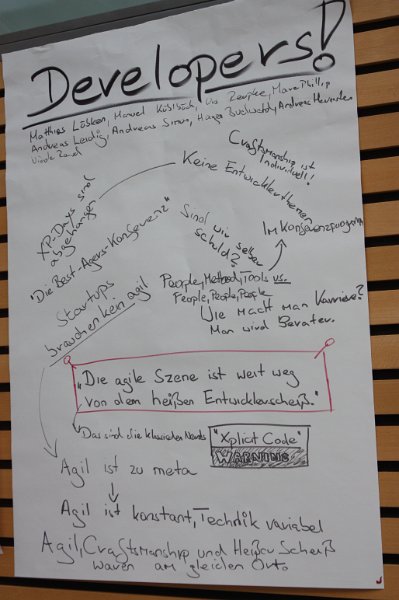 Developers!
Matthias Lübken, Manuel Küblböck, Uwe Zeunke, Marc Philipp
Andreas Leidig, Andreas Simon, Hagen Buchwald, Andreas
Craftsmanship ist
individuell!
Keine Entwicklerthemen
Im Konferenzprogramm
XP-Days sind
abgehangen
"Die Best-Agers-Konferenz"
Sind wir selber
schuld?
Startups
brauchen kein agil
People, Method, Tools vs.
People, People, People
Wie macht man Karriere?
Man wird Berater.
"Die agile Szene ist weit weg
von dem heißen Entwicklerscheiß."
Das sind die klassischen Nerds
"Xplict Code"
WARNING
Agil ist zu meta
Agil ist konstant, Technik variabel
Agil, Craftsmanship und Heißer Scheiß
waren am gleichen Ort.